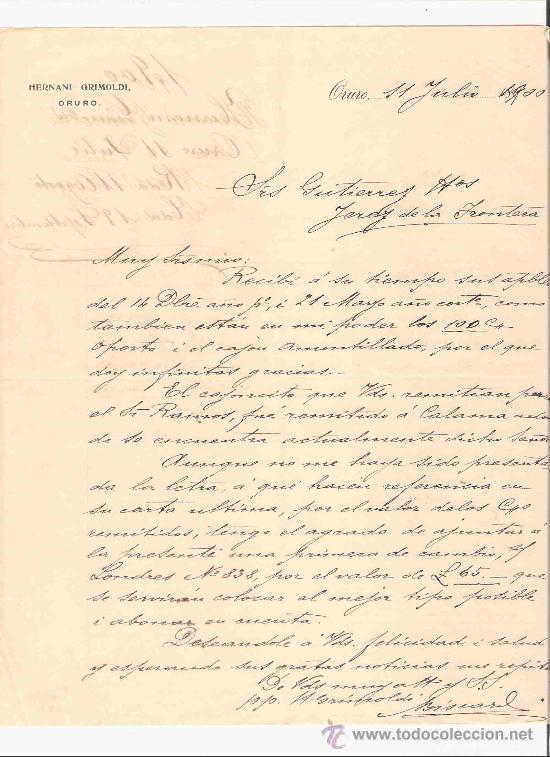 HERNANI GRIMOLDI,
ORURO.
Oruro, 11 Julio 1900
Srs Gutierrez Hos
Jerez de la Frontera
Muy Sres mios:
Recibí á su tiempo sus apbles
del 14 Dbre año po. i 21 Marzo año corte, como
tambien estan en mi poder los 100 C/s
Oporto i el cajon Amontillado, por el que
doy infinitas gracias.-
El cajoncito que Vds. remitian para
el Sr Ramos, fué remitido á Calama
de se encuentra actualmente dicho Señor
Aunque no me haya sido presenta
da la letra, a que hacen referencia en
su carta ultima, por el valor de los C/s
remitidos, tengo el agrado de ajuntar á
la presente una primera de cambio, s/
Londres No 838, por el valor de £ 65.- que
se servirán colocar al mejor tipo posible
i abonar en cuenta.
Deseandole á Vds. felicidad i salud
y esperando sus gratas noticias me repito
De Vds muy att y S.S.
pp. HGrimoldi
todocoleccion
www.todocoleccion.net